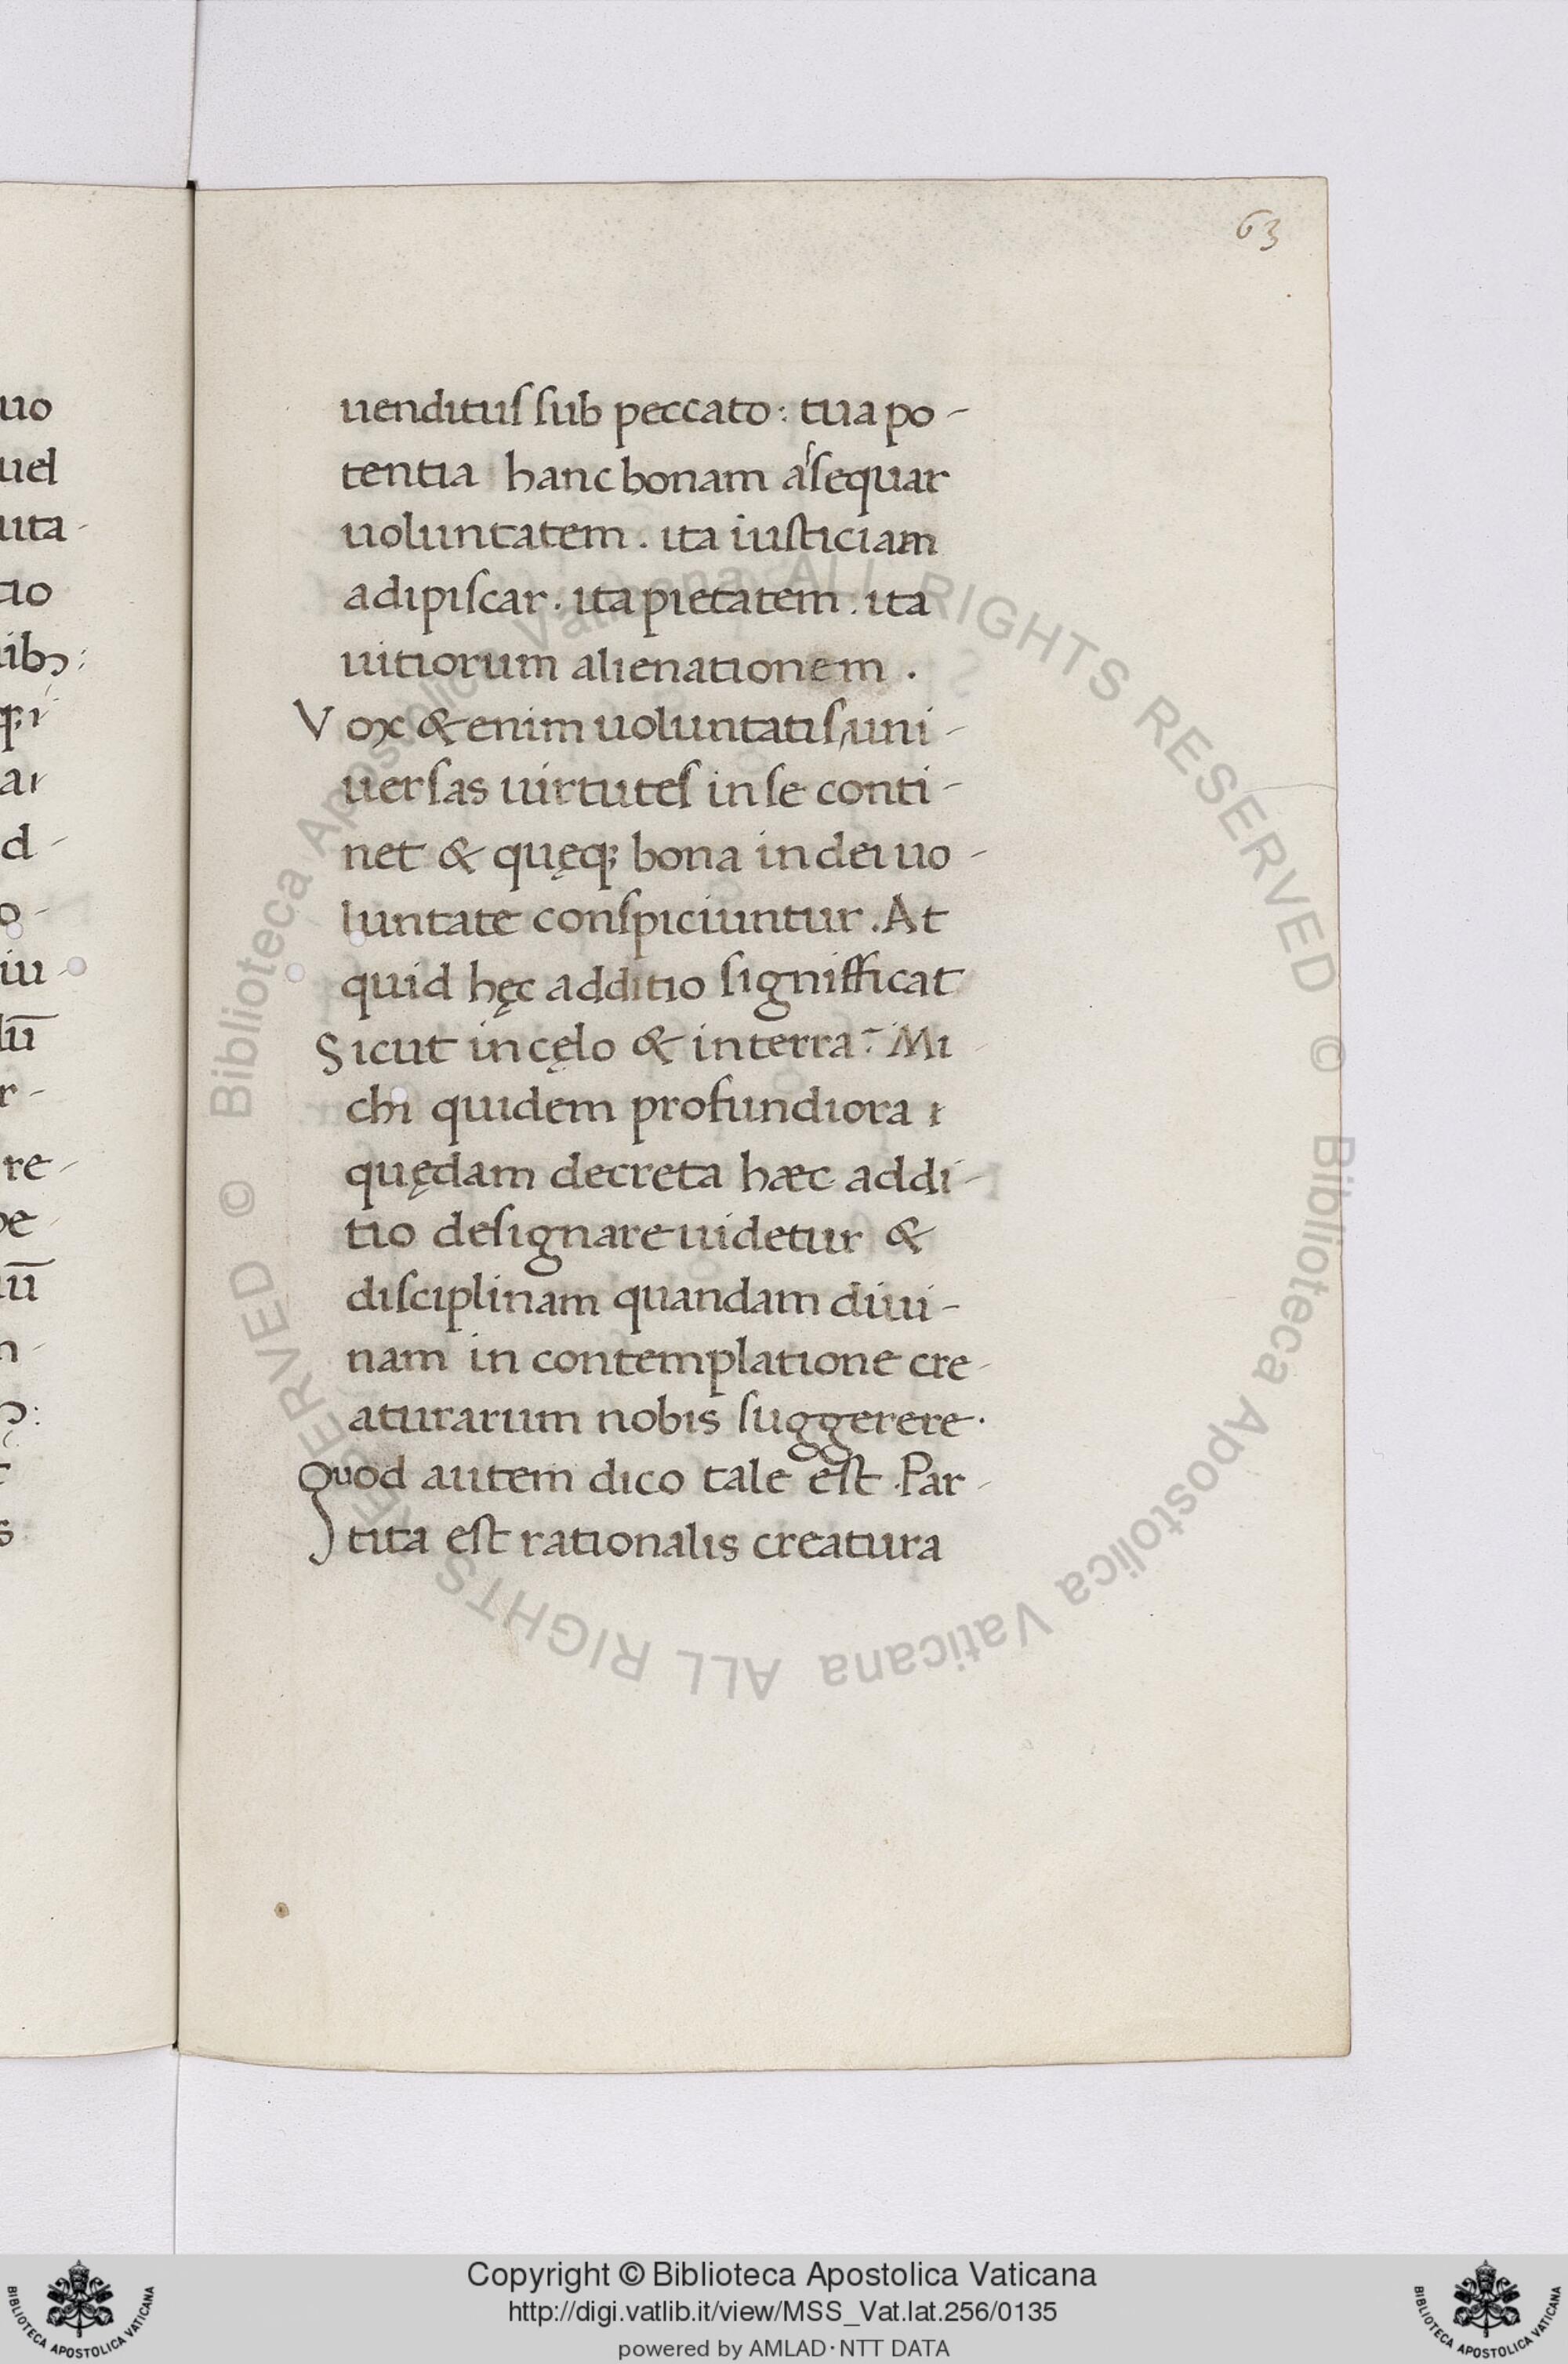 63
uo
uel
uta-
tio
ai
d-
o-
iu-
lū
r-
re-
pe
ū
n-
s
uenditus sub peccato: tua po-
tentia hanc bonam aſsequar
uoluntatem. ita iusticiam
adipiscar. ita pietatem. ita
uitiorum alienationem.
Vox & enim uoluntatis, uni-
uersas uirtutes in se conti-
net & quęq; bona in dei uo-
luntate conspiciuntur. At
quid hęc additio signifficat
Sicut in cęlo & in terra? Mi-
chi quidem profundiora
quędam decreta hæc addi-
tio designare uidetur &
disciplinam quandam diui-
nam in contemplatione cre-
aturarum nobis suggerere.
Quod autem dico tale est. Par-
tita est rationalis creatura
© Biblioteca Apostolica Vaticana ALL RIGHTS RESERVED © Biblioteca Apostolica Vaticana ALL RIGHTS RESERVED
Copyright © Biblioteca Apostolica Vaticana
http://digi.vatlib.it/view/MSS_Vat.lat.256/0135
powered by AMLAD·NTT DATA
BIBLIOTECA APOSTOLICA VATICANA
BIBLIOTECA APOSTOLICA VATICANA